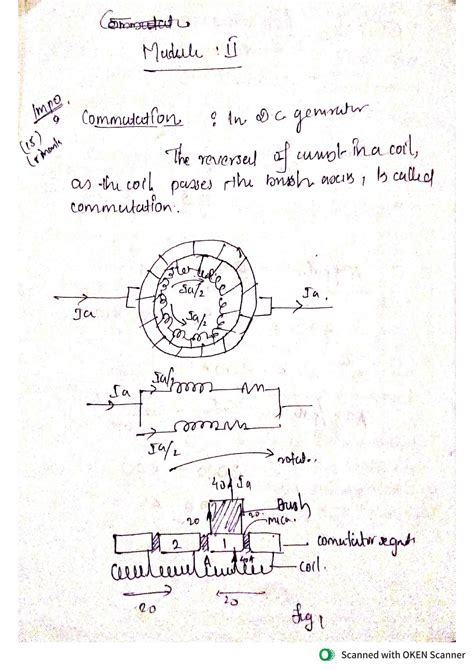 Module : II
Impo.
(15)
Commutation : In DC generator
The reversel of current in a coil,
as the coil passes the brush axis, is called
commutation.
Ia
Ia/2
Ia/2
Ia.
Ia
Ia/2
Ia/2
rotat..
40
Ia
Brush
20
20.
mica.
2
1
A
40A
comutator segnts
coil.
20
20
fig 1
Scanned with OKEN Scanner